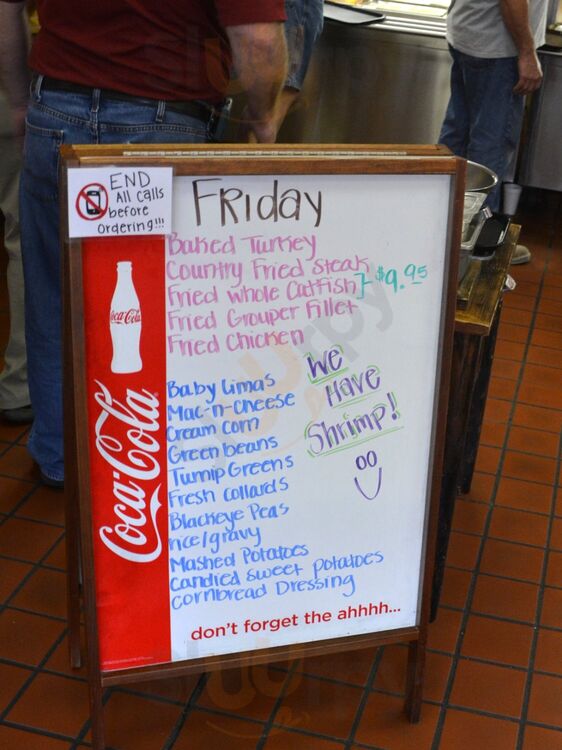 END
All calls
before
ordering!!!
Friday
Baked Turkey
Country Fried Steak
Fried whole Catfish } $9.95
Fried Grouper Fillet
Fried Chicken
We
Have
Shrimp!
Baby Limas
Mac-n-cheese
Cream corn
Green beans
Turnip Greens
Fresh collards
Blackeye Peas
rice/gravy
Mashed Potatoes
Candied sweet potatoes
cornbread Dressing
Coca-Cola
Coca-Cola
don't forget the ahhhh...